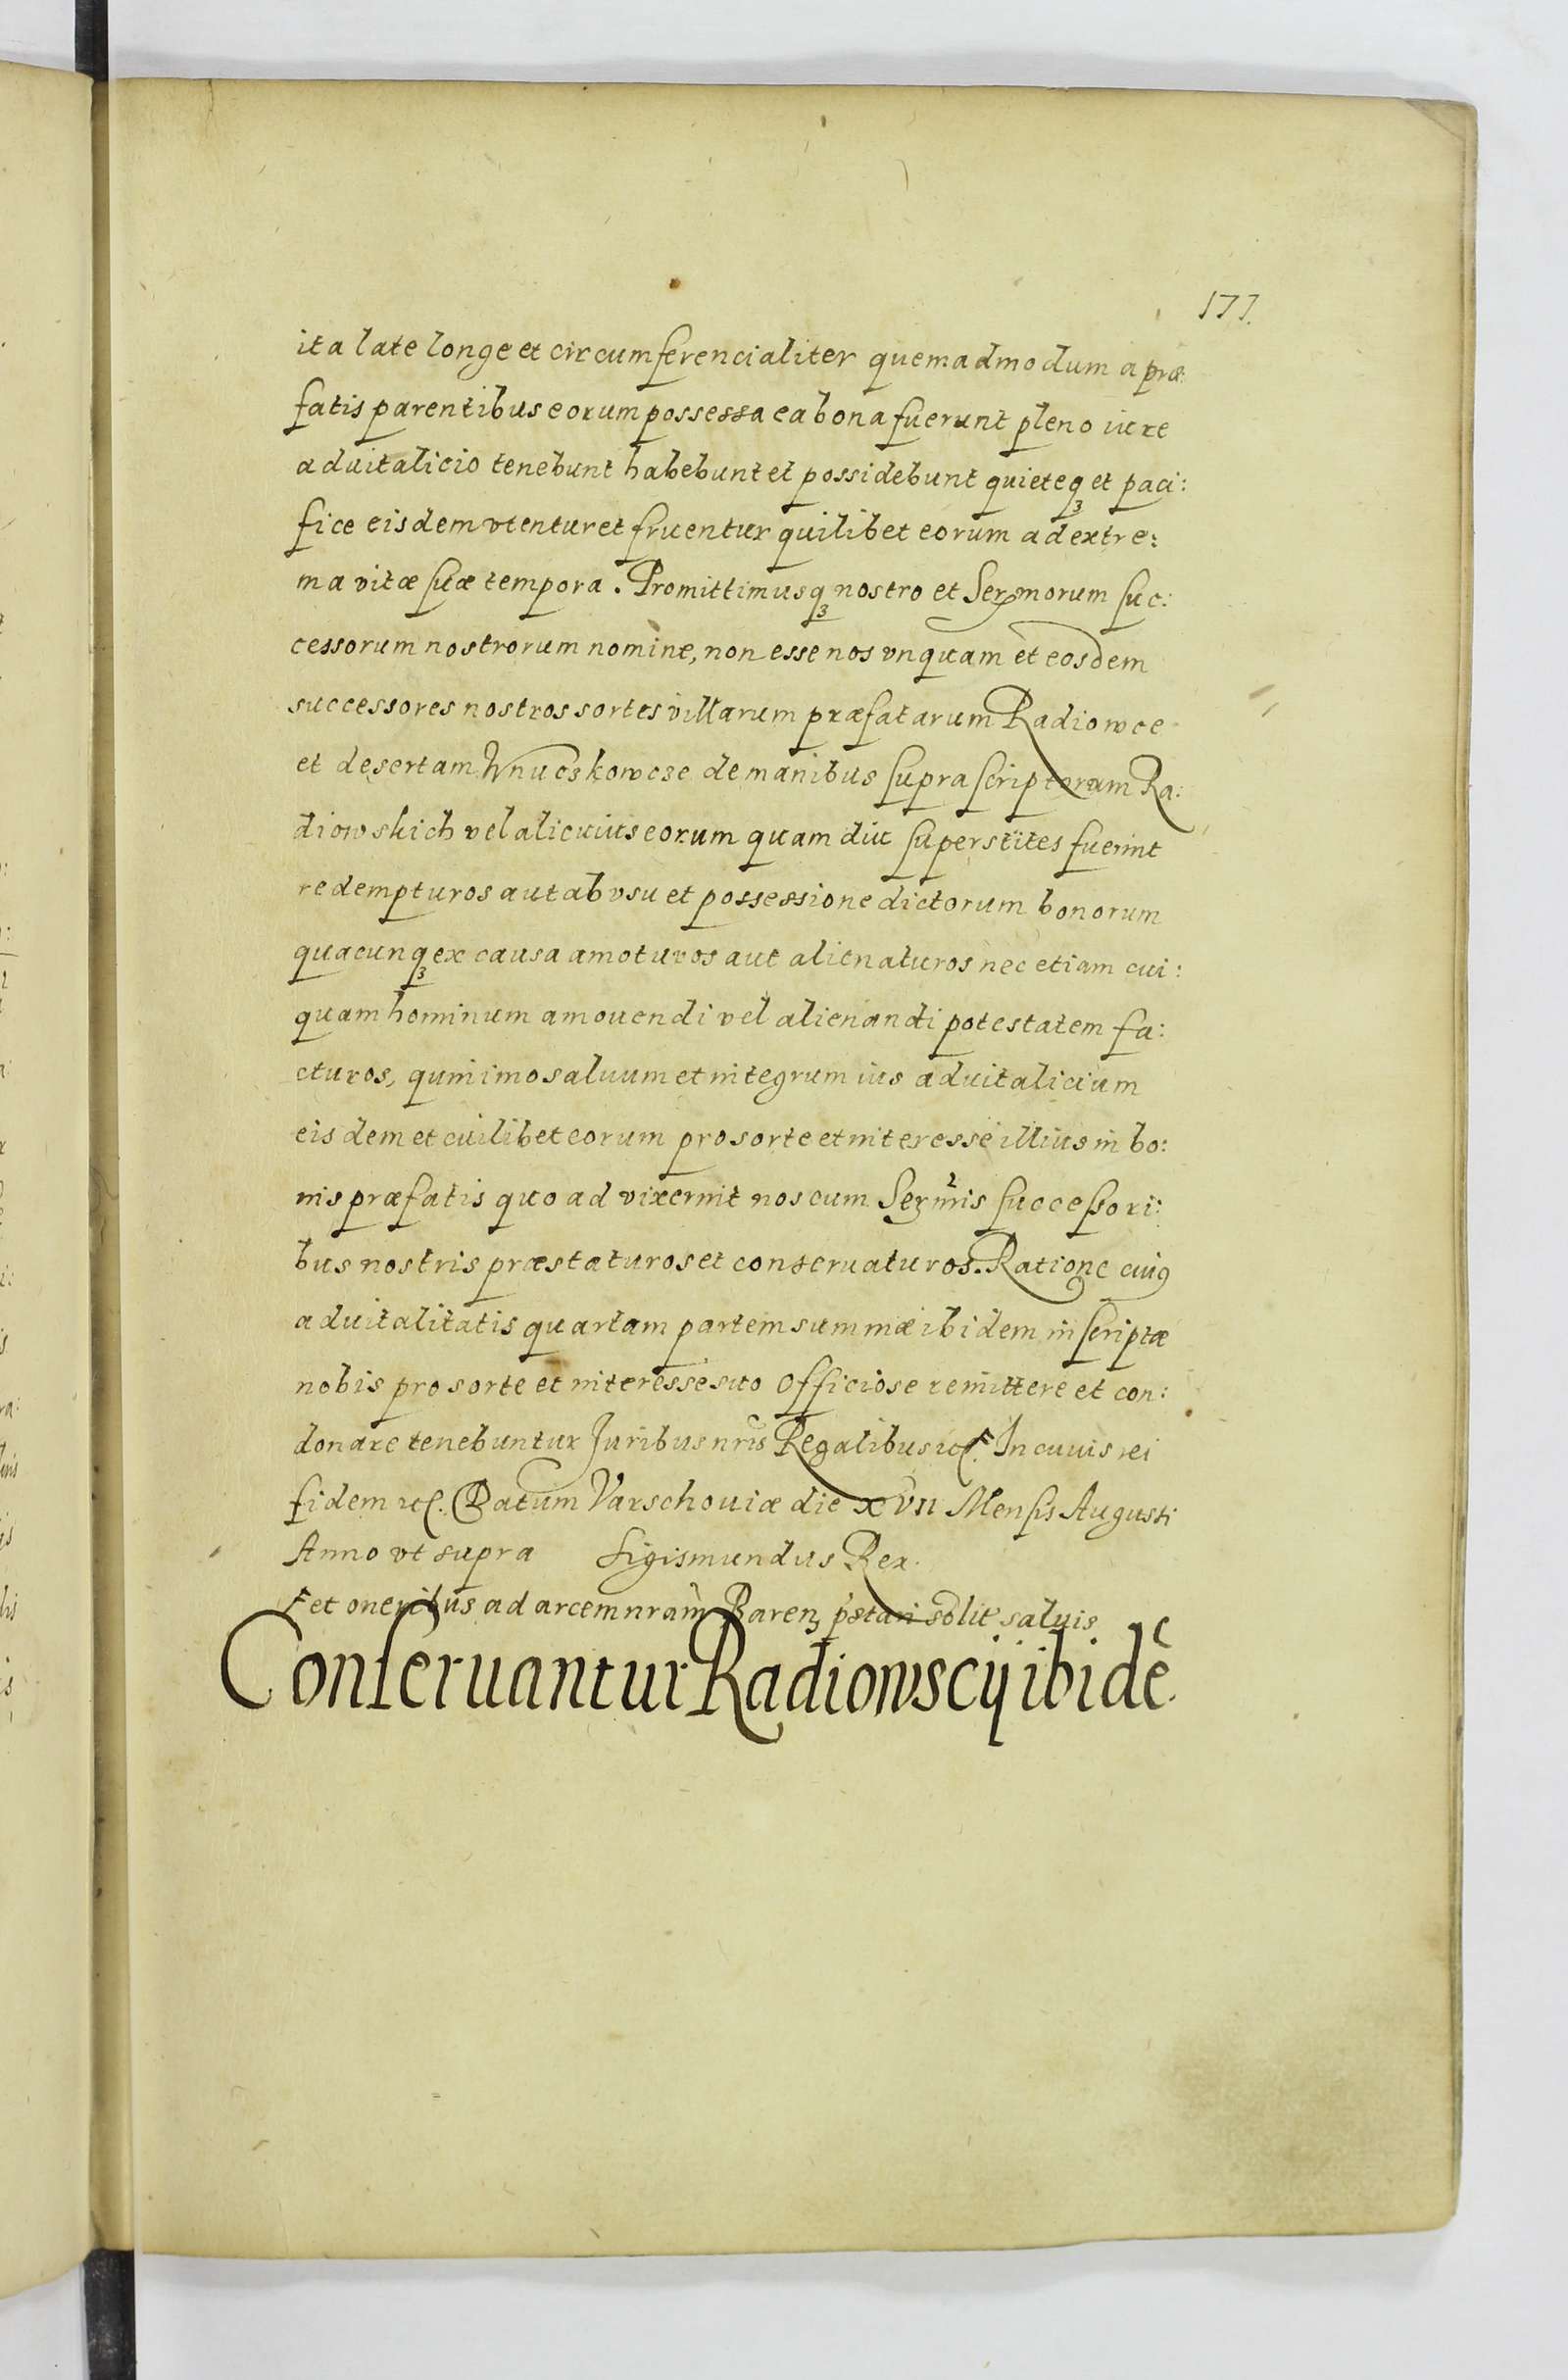 177.
ita late longe et circumferencialiter quemadmodum a præ:
fatis parentibus eorum possessa ea bona fuerunt pleno iure
aduitalicio tenebunt habebunt et possidebunt quieteqꝫ et paci:
fice eisdem vtentur et fruentur quilibet eorum ad extre:
ma vitæ suæ tempora. Promittimusqꝫ nostro et Sermorum suc:
cessorum nostrorum nomine, non esse nos vnquam et eosdem
successores nostros sortes villarum præfatarum Radiowce
et desertam Wnuczkowcze de manibus supra scriptorum Ra:
diowskich vel alicuius eorum quam diu superstites fuerint
redempturos aut ab vsu et possessione dictorum bonorum
quacunqꝫ ex causa amoturos aut alienaturos nec etiam cui:
quam hominum amouendi vel alienandi potestatem fa:
cturos, quinimo saluum et integrum ius aduitalicium
eisdem et cuilibet eorum pro sorte et interesse illius in bo:
nis præfatis quo ad vixerint nos cum Sermis successori:
bus nostris præstaturos et conseruaturos. Ratione cuiꝰ
aduitalitatis quartam partem summæ ibidem inscriptæ
nobis pro sorte et interesse suo officiose remittere et con:
donare tenebuntur Juribus nris Regalibus etc. In cuius rei
fidem etc. Datum Varschouiæ die XVII Mensis Augusti
Anno vt supra Sigismundus Rex.
et oneribus ad arcem nram Barenꝫ pstari solit saluis
Conseruantur Radiowscij ibidē.